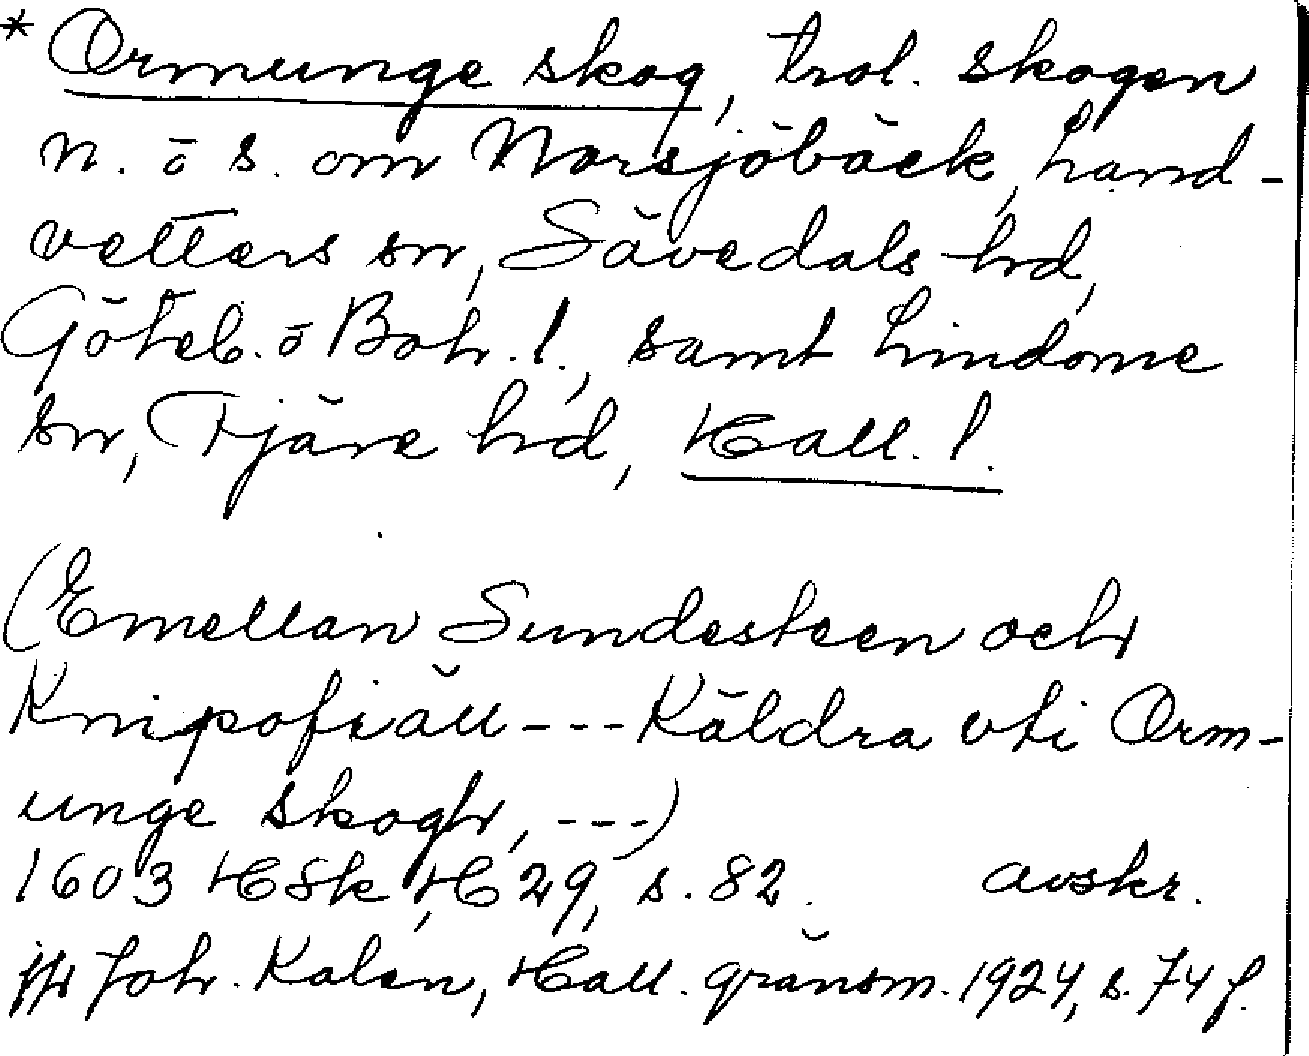 * Ormunge skog, trol. skogen
n. ō s. om Norsjöbäck, Land-
vetters sn, Sävedals hd,
Göteb. ō Boh. l., samt Lindome
sn, Fjäre hd, Hall. l.
(Emellan Sundesteen och
Knipofiäll --- Käldra vti Orm-
unge skogh, ---)
1603 HSk, H 29, s. 82. avskr.
jfr Joh. Kalén, Hall. gränsm. 1924, s. 74 f.